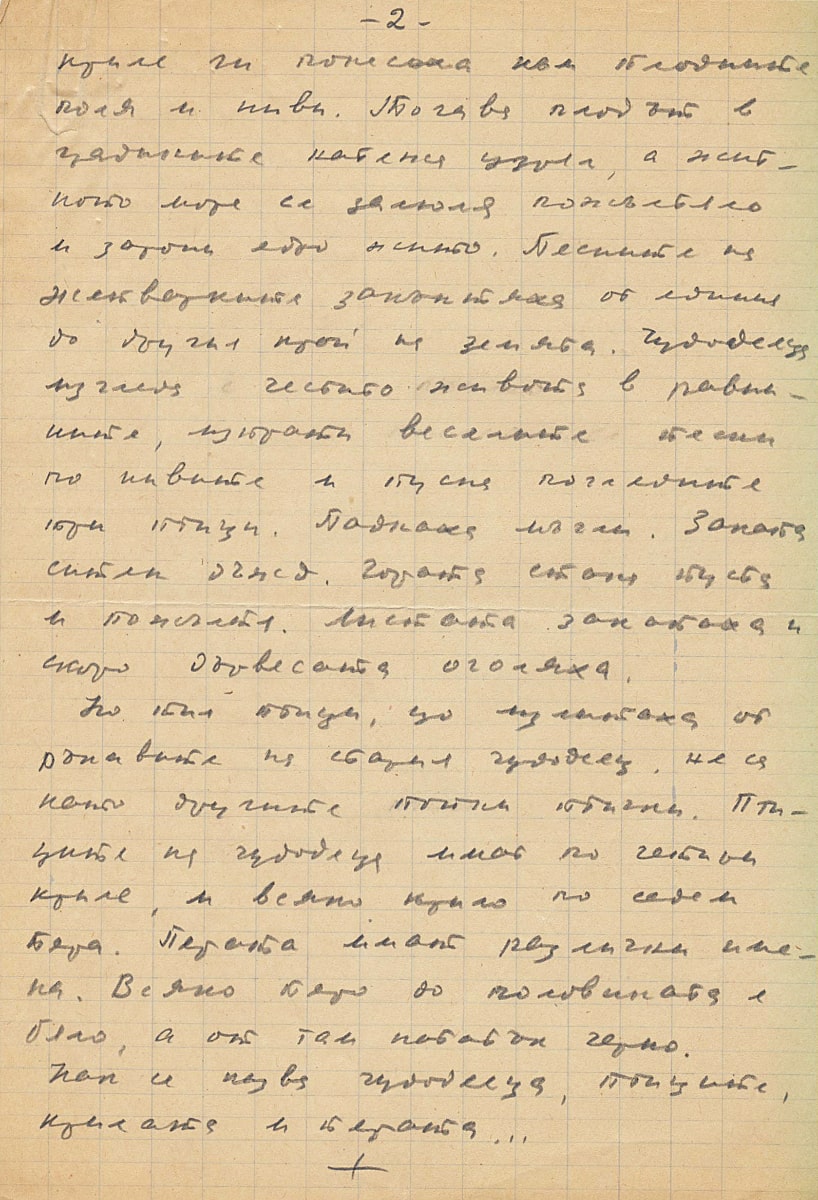 - 2 -
криле ги понесоха към плодните
поля и ниви. Тогава плодът в
градините натежа узря, а жит-
ното море се залюля пожълтяло
и зарони едро жито. Песните на
жетварките закънтяха от единия
до другия край на земята. Чудодееца
изгледа честито живота в равни-
ните, изпрати веселите песни
по нивите и пусна последните
три птици. Паднаха мъгли. Запята
ситен дъжд. Гората стана пуста
и пожълтя. Листата закапаха и
скоро дърветата оголяха.
Но тия птици, що излитаха от
ръкавите на стария чудодеец, не са
като другите пойни птички. Пти-
ците на чудодееца имат по четири
криле, и всяко крило по седем
пера. Перата имат различни име-
на. Всяко перо до половината е
бяло, а от там нататък черно.
Как се казва чудодееца, птиците,
крилата и перата...